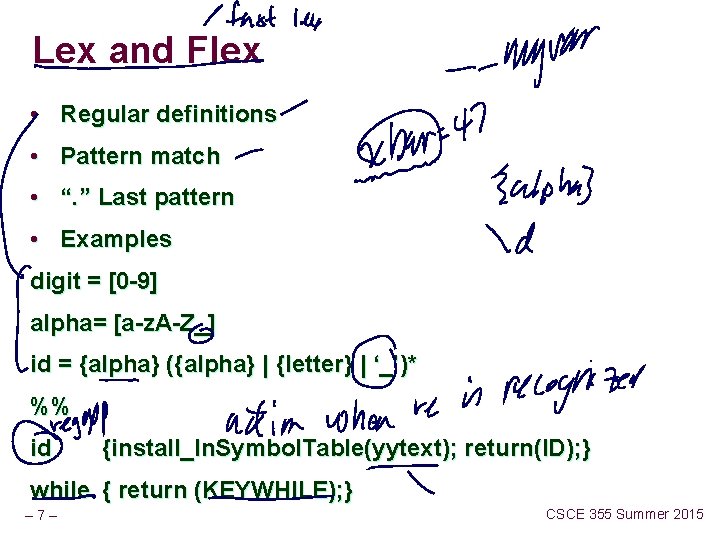 fast lex
Lex and Flex
__myvar
• Regular definitions
xbar=47
• Pattern match
• “. ” Last pattern
{alpha}
• Examples
\d
digit = [0-9]
alpha= [a-z. A-Z_]
id = {alpha} ({alpha} | {letter} | ‘_’)*
%%
action when re is recognized
id {install_In. Symbol. Table(yytext); return(ID); }
while { return (KEYWHILE); }
– 7 –
CSCE 355 Summer 2015